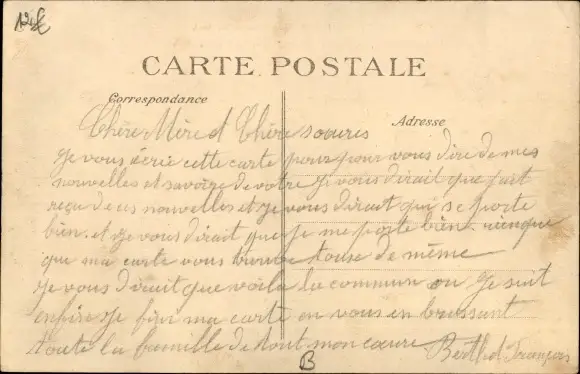 12 €
CARTE POSTALE
Correspondance
Adresse
Chère Mère et Chère soeures
Je vous écrie cette carte pour vous dire de mes
nouvelles et savoire de votre je vous dirait que jait
reçu de ces nouvelles et je vous dirait qui se porte
bien. et je vous dirait que je me porte bien.
que ma carte vous trouve touse de même
je vous dirait que voila la commun ou je suit
enfire je fini ma carte en vous en brassant
toute la famille de tout mon coeure Berthet François
B